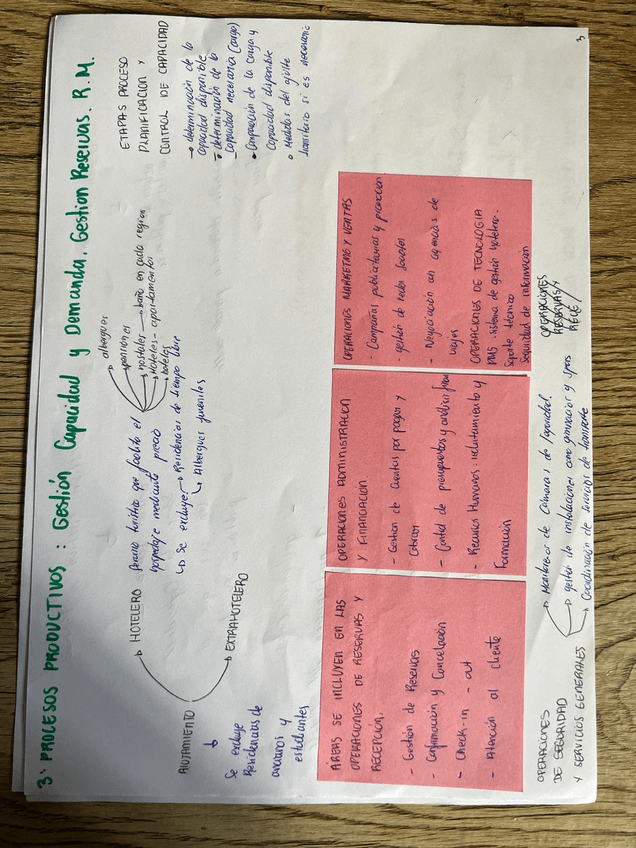 3. PROCESOS PRODUCTIVOS : Gestión Capacidad y Demanda. Gestion Reservas. R.M.
ALOJAMIENTO
↓
Se excluye
Residencias de
ancianos y
estudiantes
HOTELERO
Servicio turístico que facilita el
hospedaje mediante precio
↳ Se excluye → Residencias de tiempo libre
↳ Albergues juveniles
albergues
pensiones
hostales → baño en cada región
Hoteles - apartamentos
hoteles
EXTRAHOTELERO
ETAPAS PROCESO
PLANIFICACION Y
CONTROL DE CAPACIDAD
→ determinación de la
capacidad disponible
- determinación de la
capacidad necesaria (carga)
• Comparación de la carga y
capacidad disponible
• Medidas del ajuste
transitorio si es necesario
ÁREAS SE INCLUYEN EN LAS
OPERACIONES DE RESERVAS Y
RECEPCIÓN.
- Gestión de Reservas
- Confirmación y Cancelación
- Check-in - out
- Atención al cliente
OPERACIONES ADMINISTRACION
Y FINANCIACION.
- Gestion de cuentas por pagar y
cobrar
- Control de presupuestos y analisis finan
- Recursos Humanos: reclutamiento y
Formación
OPERACIONES MARKETING Y VENTAS
- Campañas publicitarias y promocion
- gestión de redes sociales
- Negociación con agencias de
viajes
OPERACIONES DE TECNOLOGIA
PMS. sistema de gestión hotelero.
Soporte técnico
Seguridad de informacion
OPERACIONES
DE SEGURIDAD
Y SERVICIOS GENERALES
Monitoreo de Cámaras
gestión de instalaciones como gimnasios y spas
Coordinación de servicios de transporte
OPERACIONES
RESERVAS Y
3